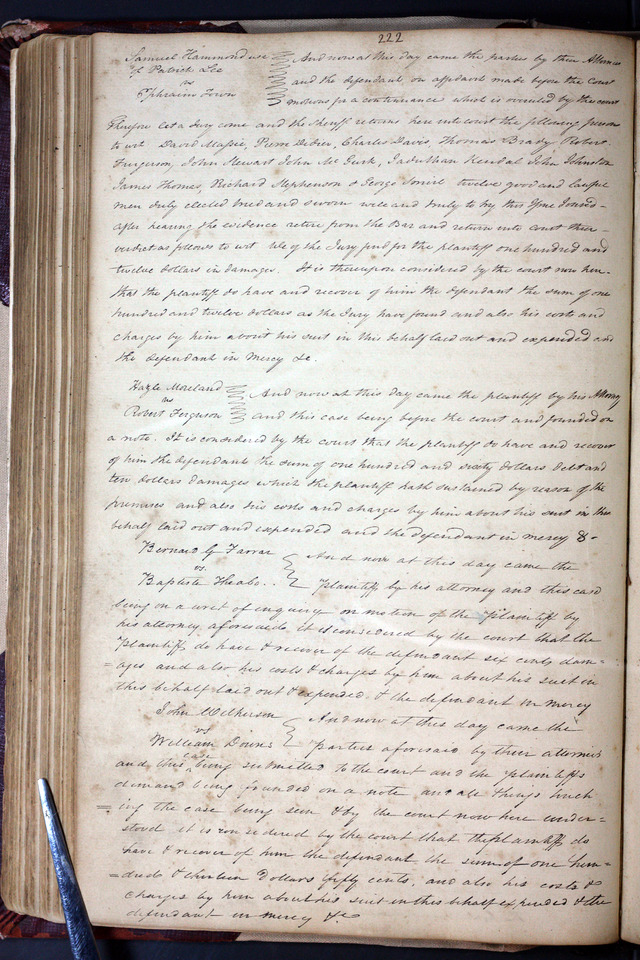 222
Samuel Hammond use
of Patrick Lee
vs
Ephraim Town
And now at this day came the parties by their Attornies
and the defendant on affidavit made before the Court
motions for a continuance which is overruled by the court
Therefore let a Jury come and the Sheriff returns here into court the following persons
to wit David Massie, Pierre Didier, Charles Davis, Thomas Brady Robert
Ferguson, John Stewart John Mc Gurk, Jaduthan Kendal John Johnston
James Thomas, Richard Stephenson & George twelve good and lawful
men duly elected tried and sworn well and truly to try this Issue Joined
after hearing the evidence retire from the Bar and return into court their
verdict as follows to wit We of the Jury find for the plaintiff one hundred and
twelve dollars in damages. It is thereupon considered by the court now here
that the plaintiff do have and recover of him the defendant the sum of one
hundred and twelve dollars as the Jury have found and also his costs and
charges by him about his suit in this behalf laid out and expended and
the defendant in mercy &c.
Hazle Moreland
vs
Robert Ferguson
And now at this day came the plaintiff by his Attorney
and this case being before the court and founded on
a note. It is considered by the court that the plaintiff do have and recover
of him the defendant the sum of one hundred and sixty dollars debt and
ten dollars damages which the plaintiff hath sustained by reason of the
premises and also his costs and charges by him about his suit in this
behalf laid out and expended and the defendant in mercy &-
Bernard G Farrar
vs.
Baptiste Theabo..
And now at this day came the
plaintiff by his attorney and this case
being on a writ of enquiry on motion of the plaintiff by
his attorney aforesaid it is considered by the court that the
plaintiff do have & recover of the defendant six cents dam=
=ages and also his costs & charges by him about his suit in
this behalf laid out & expended & the defendant in mercy
John Wilkerson
vs
William Downs
And now at this day came the
parties aforesaid by their attornies
and this case being submitted to the court and the plaintiffs
demand being founded on a note and all things touch
=ing the case being seen & by the court now here under-
stood it is considered by the court that the plaintiff do
have & recover of him the defendant the sum of one hun=
=dred & thirteen Dollars fifty cents, and also his costs &
charges by him about his suit in this behalf expended & the
defendant in mercy &c